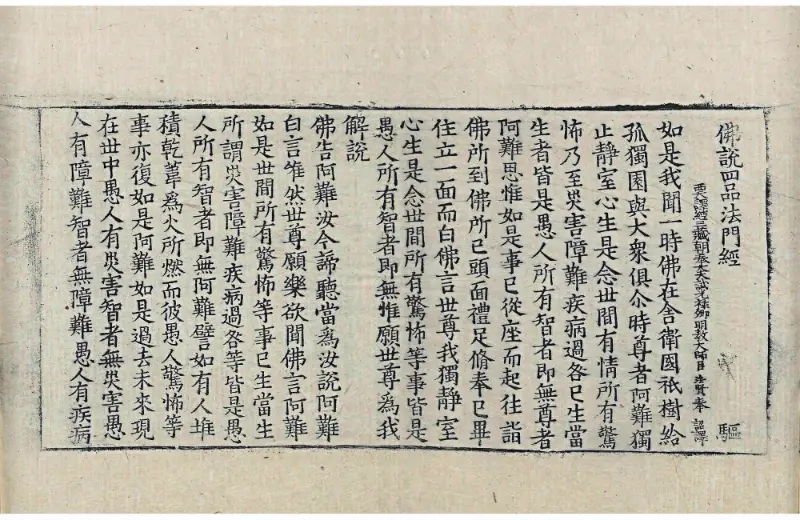 佛說四品法門經 驅
三藏朝奉大夫試光祿卿明教大師臣法賢奉 詔譯
如是我聞一時佛在舍衛國祇樹給
孤獨園與大衆俱尒時尊者阿難獨
止靜室心生是念世間有情所有驚
怖乃至災害障難疾病過咎已生當
生者皆是愚人所有智者即無尊者
阿難思惟如是事已從座而起往詣
佛所到佛所已頭面禮足脩奉已畢
住立一面而白佛言世尊我獨靜室
心生是念世間所有驚怖等事皆是
愚人所有智者即無惟願世尊爲我
解說
佛告阿難汝今諦聽當爲汝說阿難
白言唯然世尊願樂欲聞佛言阿難
如是世間所有驚怖等事已生當生
所謂災害障難疾病過咎等皆是愚
人所有智者即無阿難譬如有人堆
積乾葦爲火所燃而彼愚人驚怖等
事亦復如是阿難如是過去未來現
在世中愚人有災害智者無災害愚
人有障難智者無障難愚人有疾病